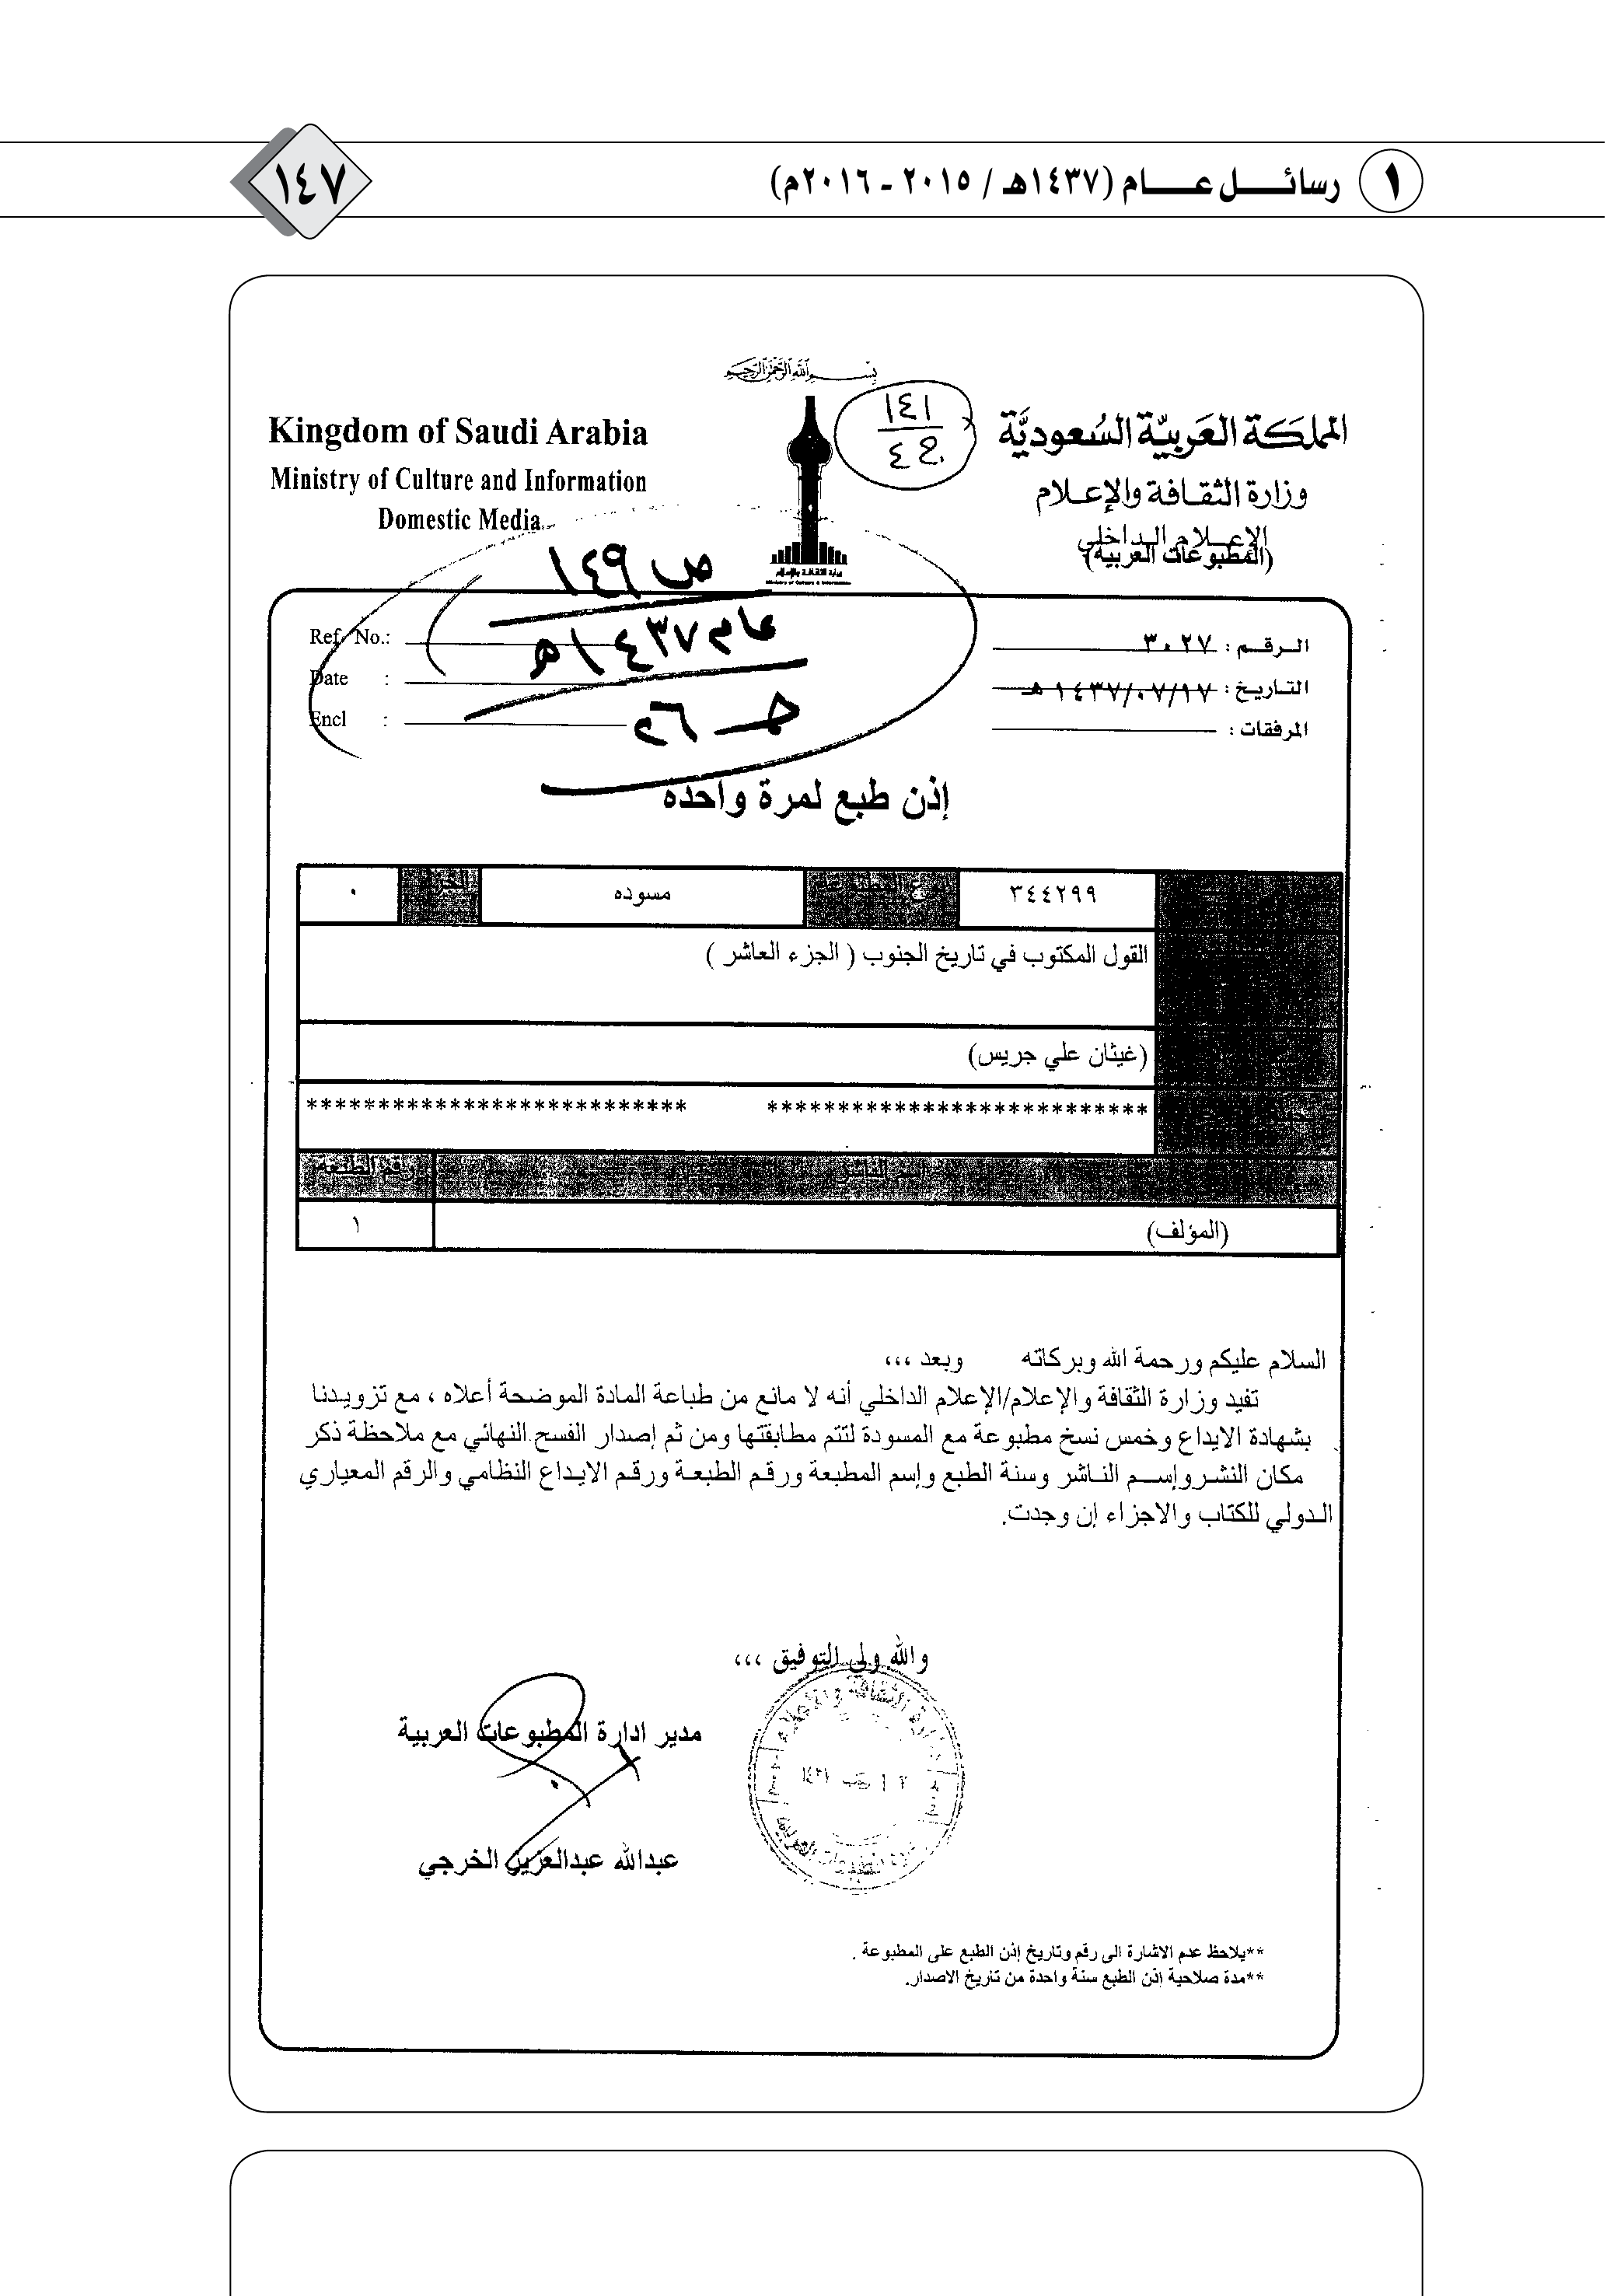 ١ رسائل عام (١٤٣٧هـ / ٢٠١٥ ـ ٢٠١٦م)
١٤٧
بسم الله الرحمن الرحيم
المملكة العربية السعودية
وزارة الثقافة والإعلام
الإعلام الداخلي
(المطبوعات العربية)
١٤١
ج ٤
Kingdom of Saudi Arabia
Ministry of Culture and Information
Domestic Media
وزارة الثقافة والإعلام
Ministry of Culture & Information
ص ١٤٩
عام ١٤٣٧هـ
الرقم : ٣٠٢٧
التاريخ : ١٤٣٧/٠٧/١٧ هـ
المرفقات :
Ref. No.:
Date :
Encl :
إذن طبع لمرة واحده
٣٤٤٢٩٩ نوع المطبوعة مسوده الجزء ٠
القول المكتوب في تاريخ الجنوب ( الجزء العاشر )
(غيثان علي جريس)
*************************** ***************************
اسم الناشر رقم الطبعة
(المؤلف) ١
السلام عليكم ورحمة الله وبركاته وبعد ،،،
تفيد وزارة الثقافة والإعلام/الإعلام الداخلي أنه لا مانع من طباعة المادة الموضحة أعلاه ، مع تزويدنا
بشهادة الايداع وخمس نسخ مطبوعة مع المسودة لتتم مطابقتها ومن ثم إصدار الفسح النهائي مع ملاحظة ذكر
مكان النشر وإسم الناشر وسنة الطبع وإسم المطبعة ورقم الطبعة ورقم الايداع النظامي والرقم المعياري
الدولي للكتاب والاجزاء إن وجدت.
والله ولي التوفيق ،،،
مدير ادارة المطبوعات العربية
وزارة الثقافة والإعلام
عبدالله عبدالعزيز الخرجي
**يلاحظ عدم الاشارة الى رقم وتاريخ إذن الطبع على المطبوعة .
**مدة صلاحية إذن الطبع سنة واحدة من تاريخ الاصدار.